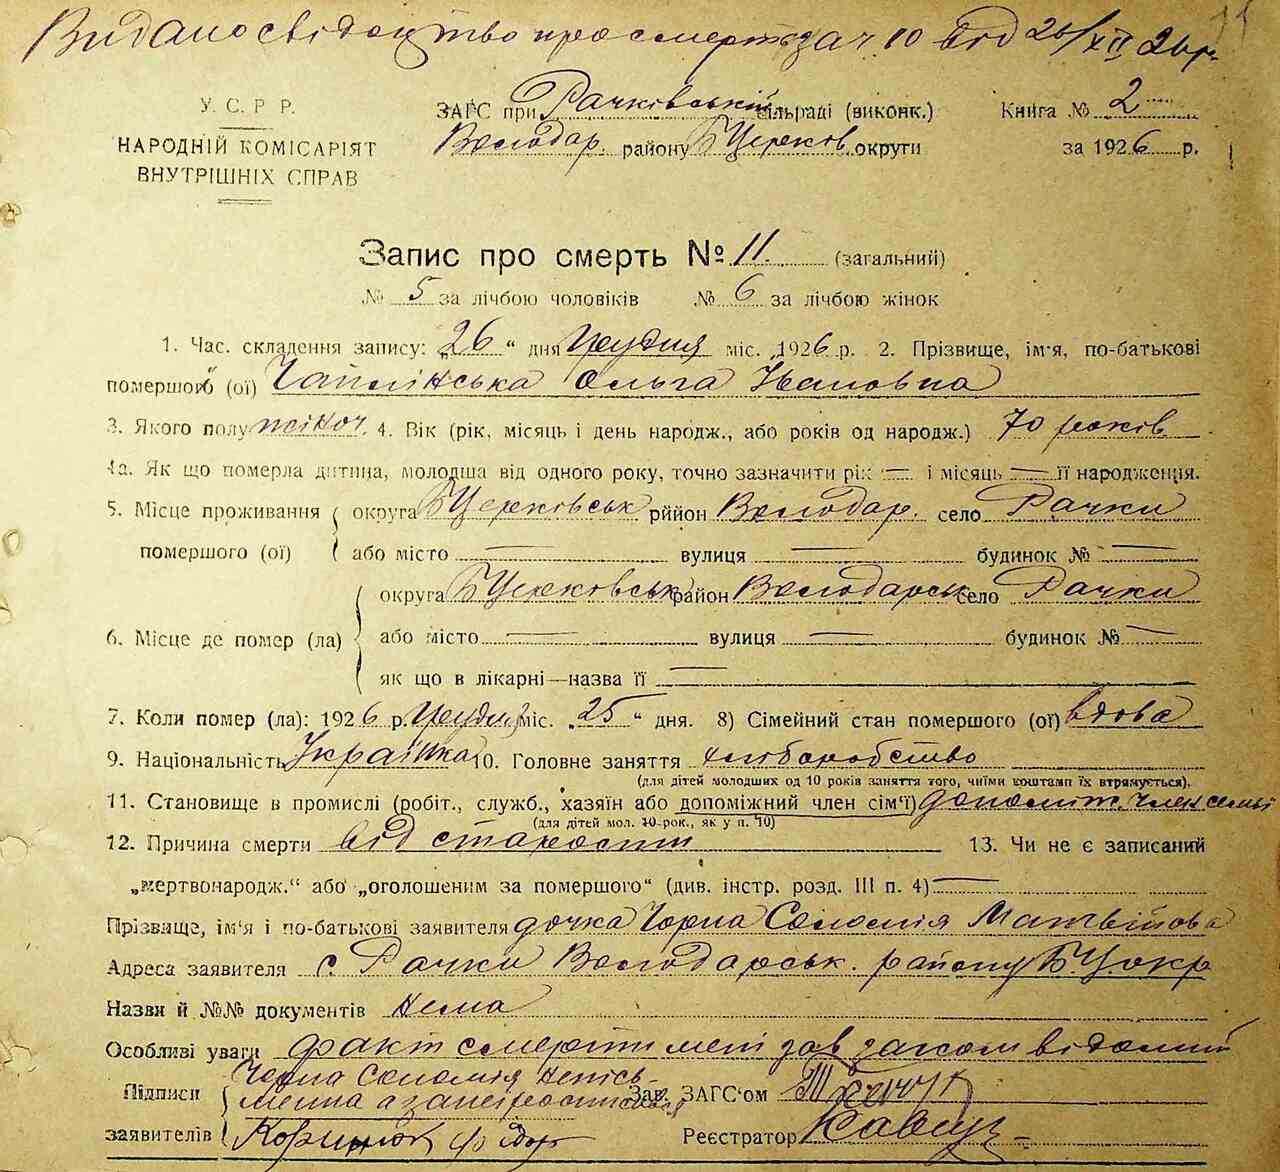 Видано свідоцтво про смерть за ч 10 від 26/XII 26 р.
У. С. Р. Р.
НАРОДНІЙ КОМІСАРІЯТ
ВНУТРІШНІХ СПРАВ
ЗАГС при Рачківській сільраді (виконк.) Книга № 2
Володар. району Б Церков. округи за 1926 р.
Запис про смерть № 11. (загальний)
№ 5 за лічбою чоловіків № 6 за лічбою жінок
1. Час. складення запису: „26“ дня Грудня міс. 1926 р. 2. Прізвище, ім'я, по-батькові
помершого (ої) Чаплінська Ольга Івановна
3. Якого полу жіноч. 4. Вік (рік, місяць і день народж., або років од народж.) 70 років
4а. Як що померла дитина, молодша від одного року, точно зазначити рік — і місяць — її народження.
5. Місце проживання округа БЦерковськ рййон Володар. село Рачки
помершого (ої) або місто — вулиця — будинок № —
округа БЦерковськ район Володарськ село Рачки
6. Місце де помер (ла) або місто — вулиця — будинок № —
як що в лікарні—назва її —
7. Коли помер (ла): 1926 р. Грудня міс. „25“ дня. 8) Сімейний стан помершого (ої) вдова
9. Національність Українка 10. Головне заняття хліборобство
(для дітей молодших од 10 років заняття того, чиїми коштами їх втримується).
11. Становище в промислі (робіт., служб., хазяїн або допоміжний член сім'ї) допоміж. член семьї
(для дітей мол. 10-рок., як у п. 10)
12. Причина смерти від старости 13. Чи не є записаний
„мертвонародж.“ або „оголошеним за помершого“ (див. інстр. розд. III п. 4) —
Прізвище, ім'я і по-батькові заявителя дочка Чорна Соломія Матвійова
Адреса заявителя с. Рачки Володарськ. району Б.Ц. окр
Назви й №№ документів нема
Особливі уваги факт смерти мені зав загсом відомий
Підписи Чорна Соломія неписьменна а за неї росписався Зав. ЗАГС'ом
заявителів Федор Реєстратор